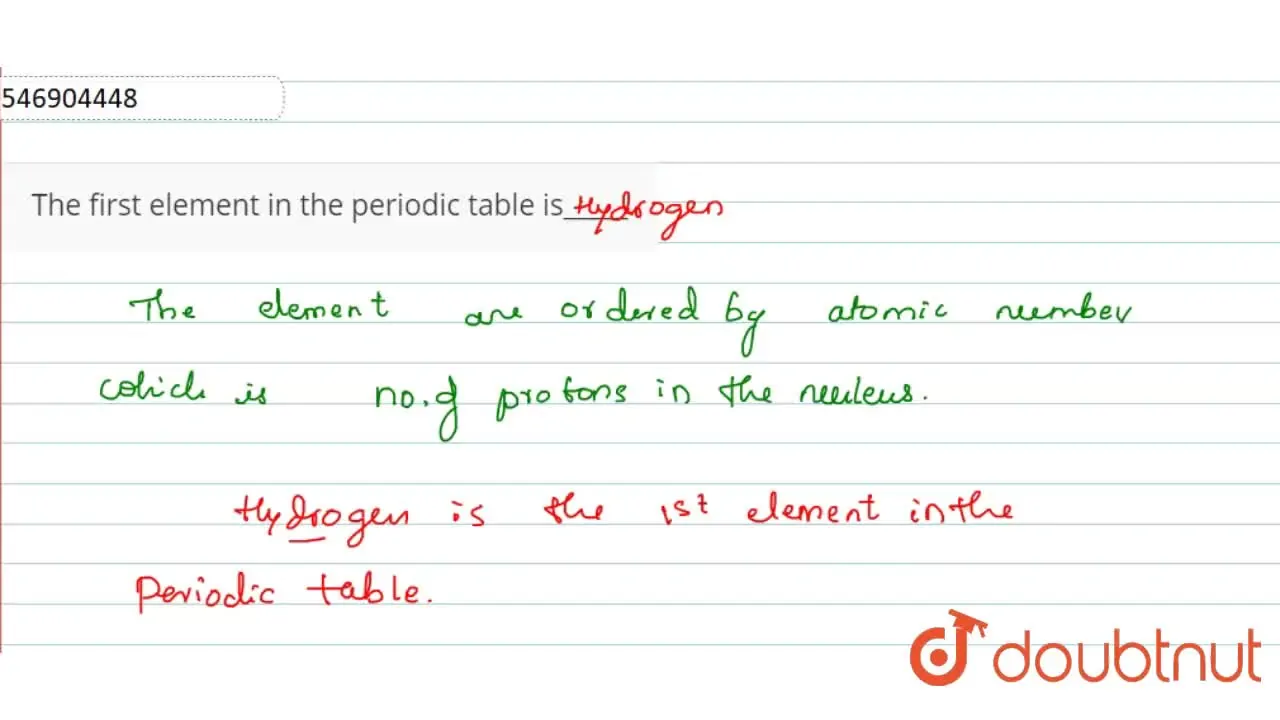 546904448
The first element in the periodic table is____ Hydrogen
The element are ordered by atomic number
which is no. of protons in the nucleus.
Hydrogen is the 1st element in the
Periodic table.
doubtnut